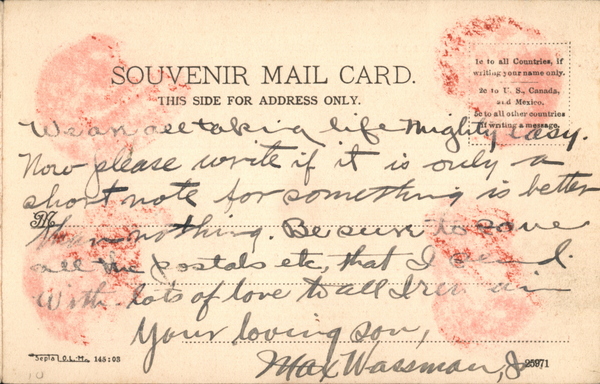 SOUVENIR MAIL CARD.
THIS SIDE FOR ADDRESS ONLY.
1c to all Countries, if
writing your name only.
2c to U. S., Canada,
and Mexico.
to all other countries
if writing a message.
We are all taking life mighty easy.
Now please write if it is only a
short note for something is better
M
than nothing. Be sure to save
all the postals etc, that I send.
With lots of love to all I remain
Your loving son,
Max Wassman, Jr
Sepia O.L.M. 145:03
25971